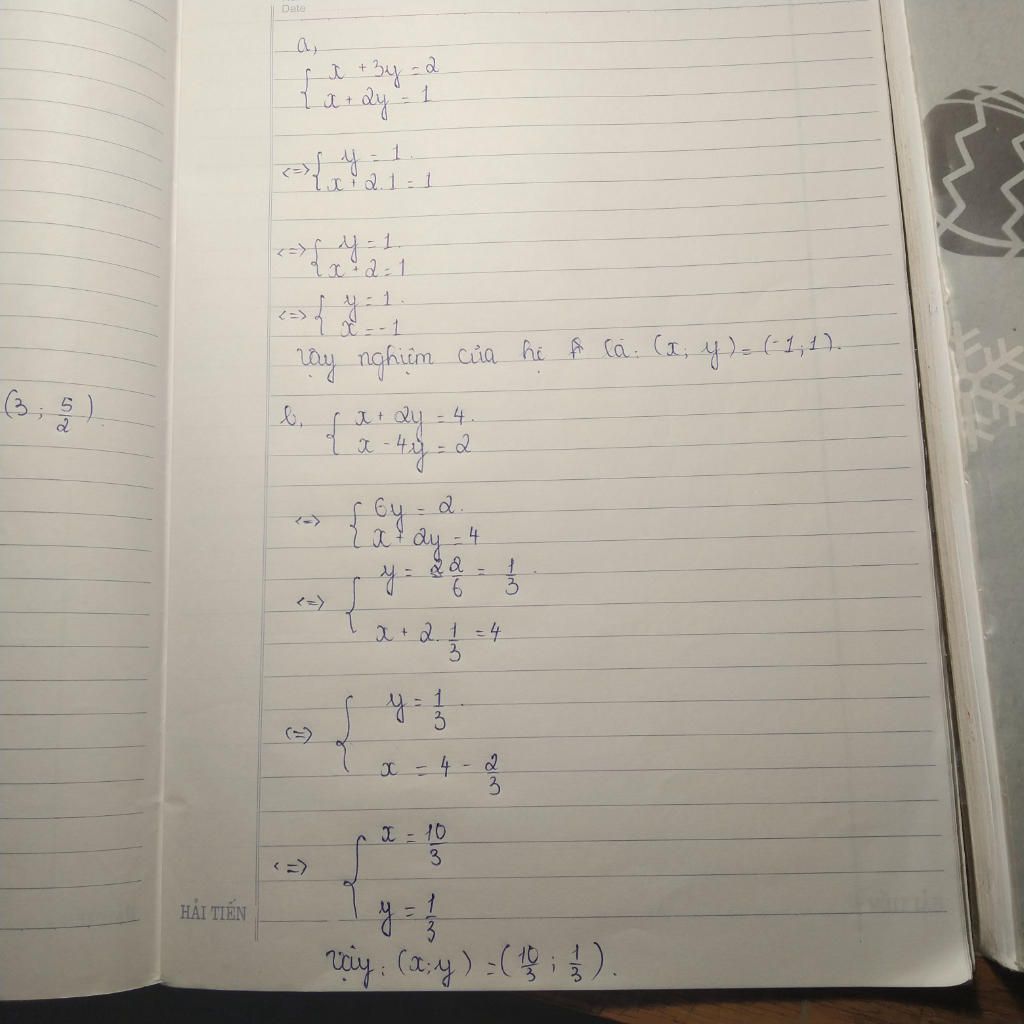 Date
a,
x + 3y = 2
x + 2y = 1
<=> y = 1.
x + 2.1 = 1
<=> y = 1.
x + 2 = 1
<=> y = 1.
x = -1
Vậy nghiệm của hệ là: (x; y) = (-1; 1).
(3; 5/2).
b, x + 2y = 4.
x - 4y = 2
<=> 6y = 2.
x + 2y = 4
<=> y = 2/6 = 1/3.
x + 2. 1/3 = 4
<=> y = 1/3.
x = 4 - 2/3
<=> x = 10/3
y = 1/3
Vậy: (x; y) = (10/3; 1/3).
HẢI TIẾN